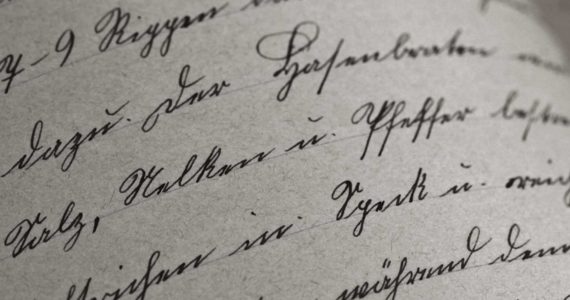 7-9 Rippen
dazu. Der Hasenbraten
Salz, Nelken u. Pfeffer
in Speck u.
während dem